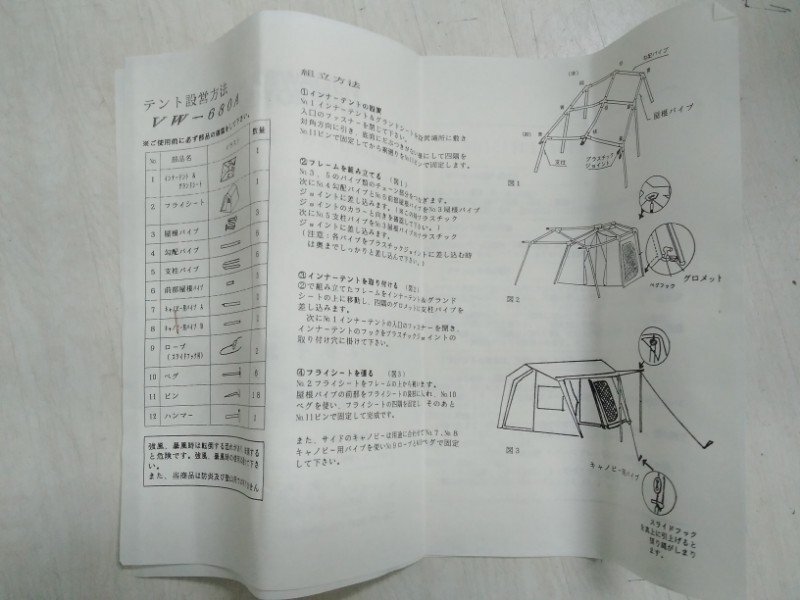 テント設営方法
VW-680A
※ご使用前に必ず部品の確認をして下さい。
No. 部品名 イラスト 数量
1 インナーテント & グランドシート 1
2 フライシート 1
3 屋根パイプ 3
4 勾配パイプ 6
5 支柱パイプ 6
6 前部屋根パイプ
7 キャノピー用パイプ A
8 キャノピー用パイプ B 1
9 ロープ (スライドフック付) 2
10 ペグ 6
11 ピン 18
12 ハンマー 1
強風、暴風時は転倒する恐れがあり、使用する
と危険です。強風、暴風時の使用はお避け下さ
い。
また、当商品は防炎及び
組立方法
①インナーテントの設置
No.1インナーテント&グランドシートを設営場所に敷き
入口のファスナーを閉じて下さい。
対角方向に引き、底面にたるつきがない様にして四隅を
No.11ピンで固定してから裏廻りをNo.11ピンで固定します。
②フレームを組み立てる (図1)
No.3、5のパイプ類のチェーン部分をつなぎます。
次にNo.4勾配パイプとNo.6前部屋根パイプをNo.3屋根パイプ
ジョイントに差し込みます。(※この時プラスチック
ジョイントのカラーと向きを確認して下さい。)
次にNo.5支柱パイプをNo.3屋根パイプのプラスチック
ジョイントに差し込みます。
(注意:各パイプをプラスチックジョイントに差し込む時
は奥までしっかりと差し込んで下さい。)
③インナーテントを取り付ける (図2)
②で組み立てたフレームをインナーテント&グランド
シートの上に移動し、四隅のグロメットに支柱パイプを
差し込みます。
次にNo.1インナーテントの入口のファスナーを開き、
インナーテントのフックをプラスチックジョイントの
取り付け穴に掛けて下さい。
④フライシートを張る (図3)
No.2フライシートをフレームの上から被います。
屋根パイプの前部をフライシートの袋部にいれ、No.10
ペグを使い、フライシートの四隅を固定し そのあと
No.11ピンで固定して完成です。
また、サイドのキャノピーは用途に合わせてNo.7、No.8
キャノピー用パイプを使いNo.9ロープとNo.10ペグで固定
して下さい。
勾配パイプ
屋根パイプ
支柱
プラスチック
ジョイント
図1
グロメット
ペグフック
図2
図3
キャノピー用パイプ
スライドフック
を真上に引上げると
張り綱がしまり
ます。